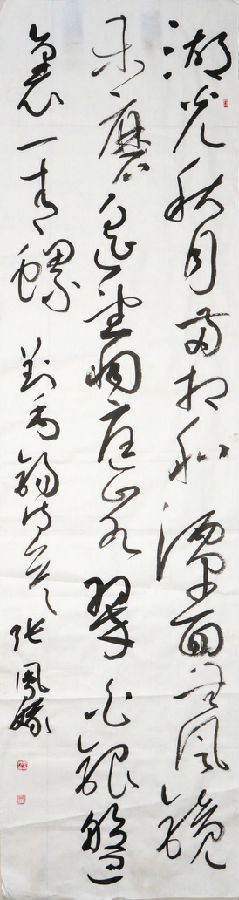 湖光秋月两相和潭面无风镜
未磨遥望洞庭山水翠白银盘
裏一青螺 刘禹锡诗 张凤